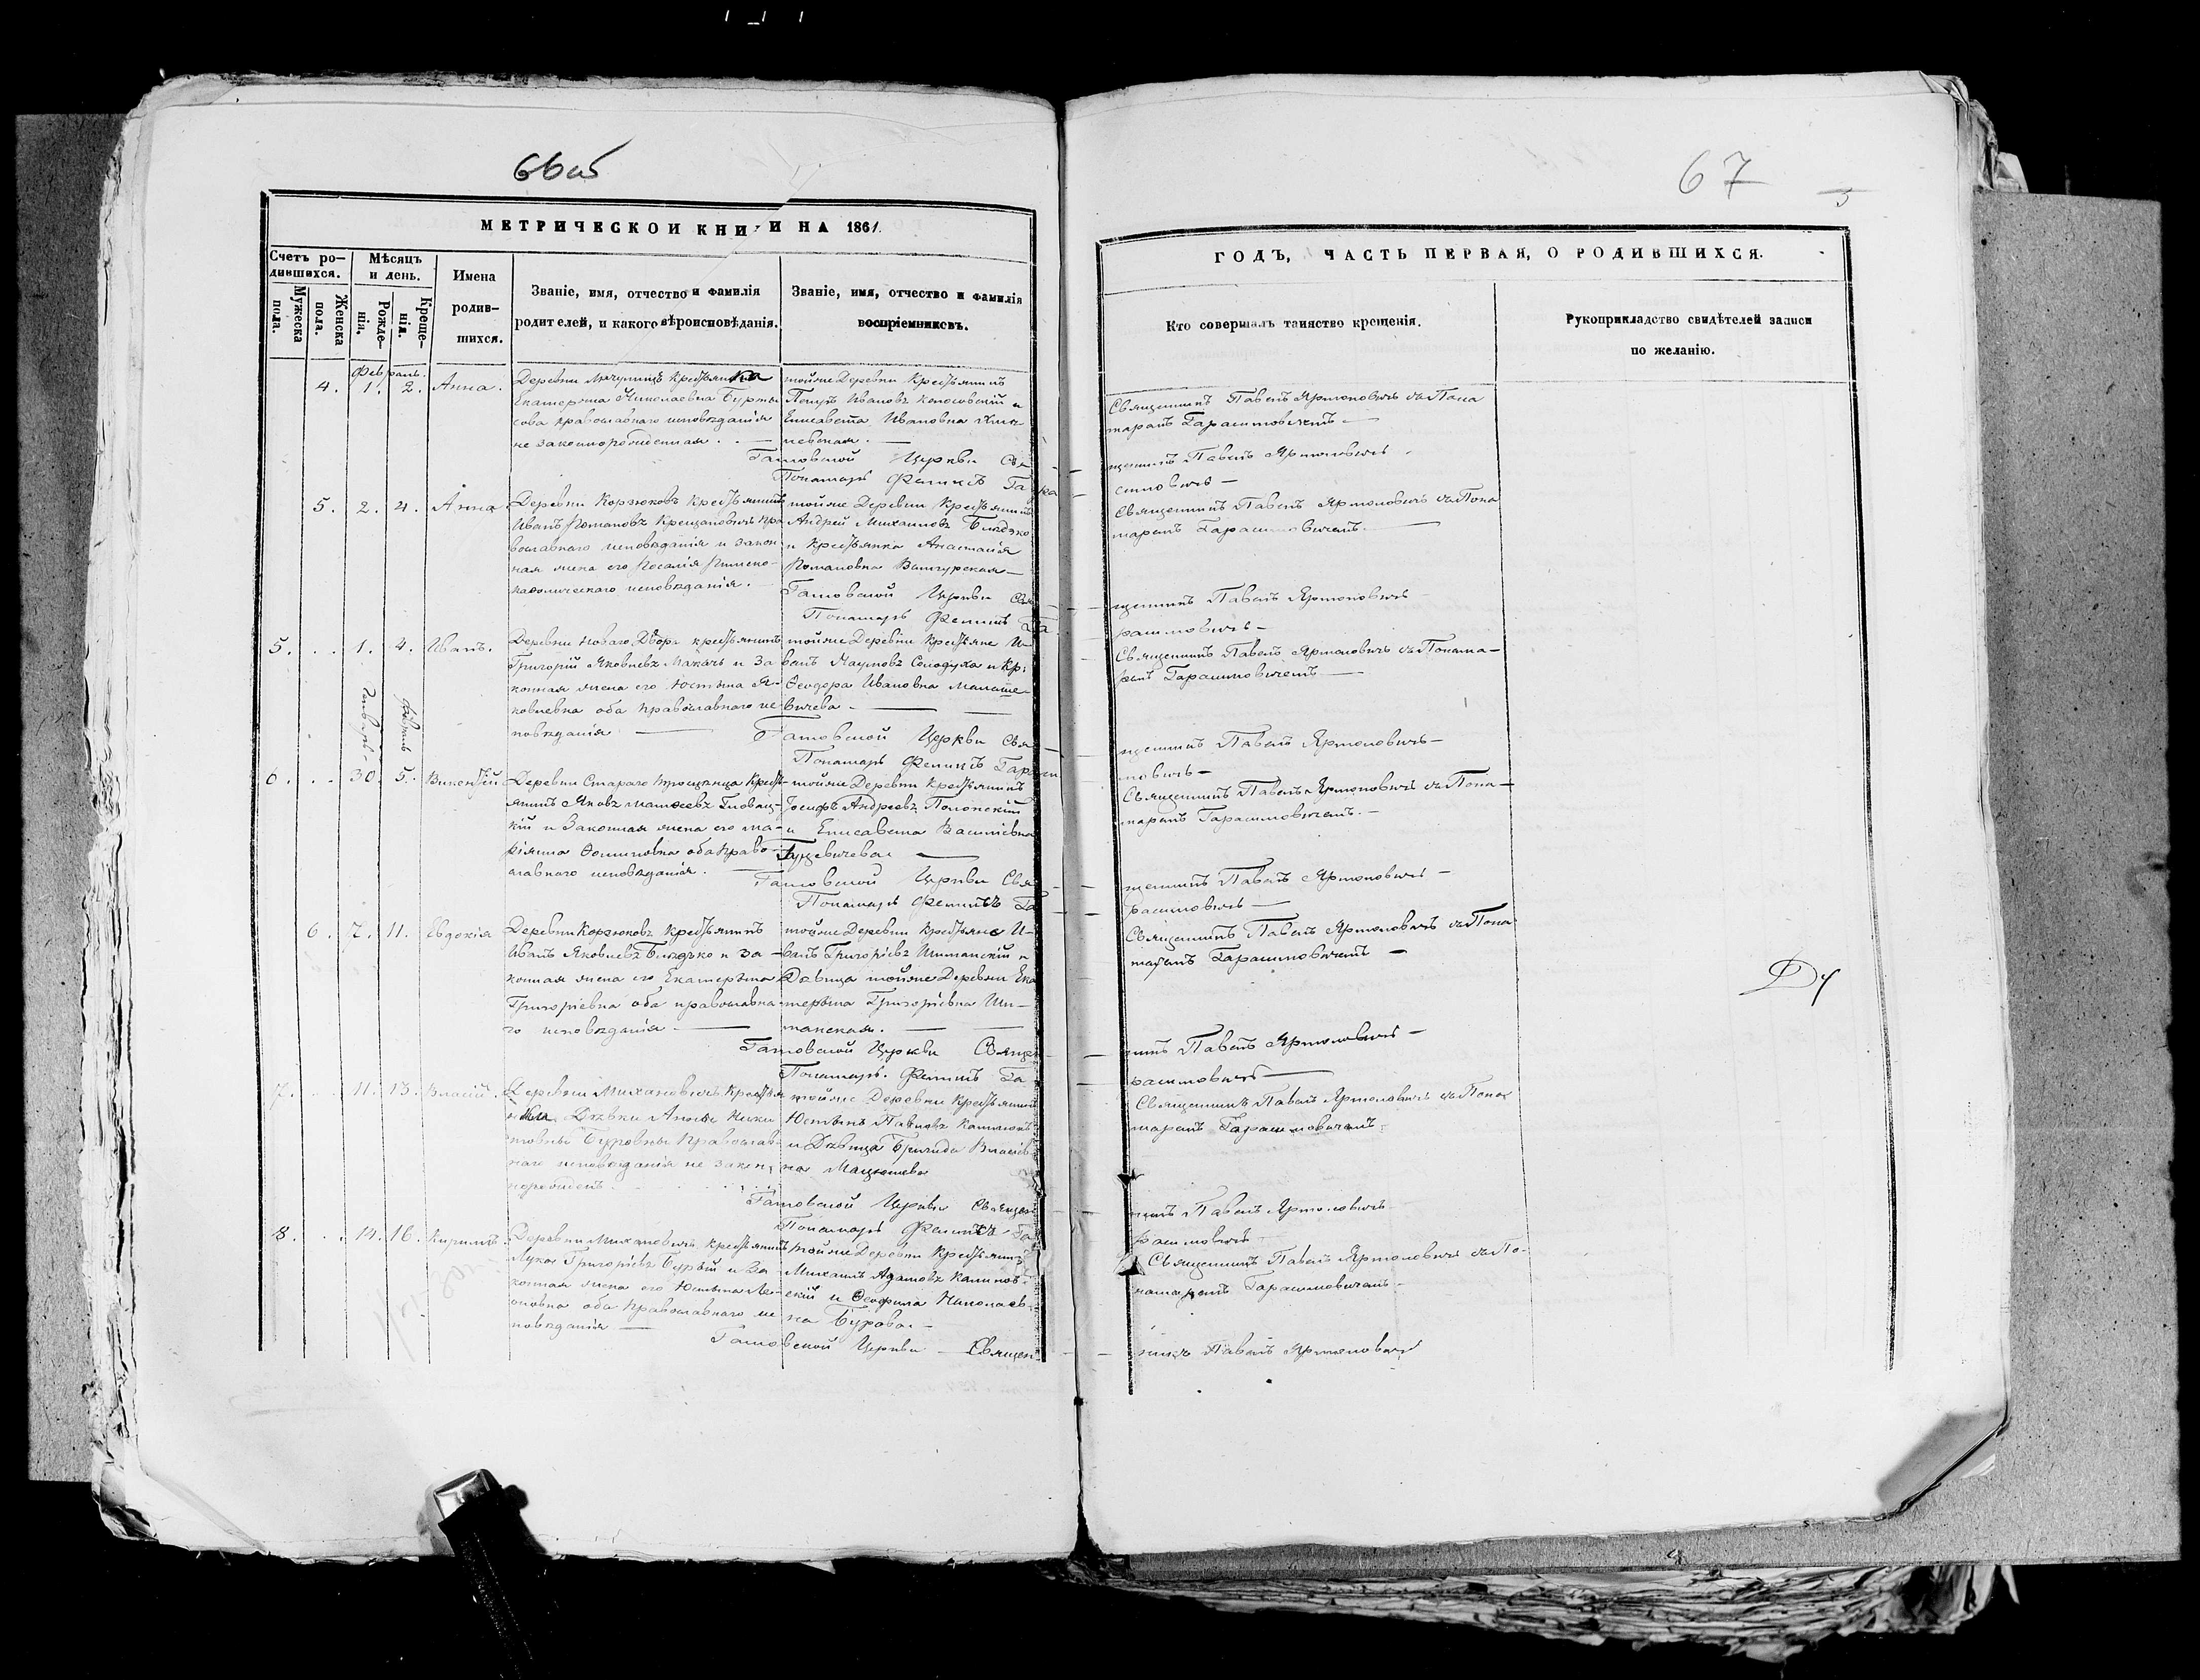 66 об
МЕТРИЧЕСКОЙ КНИГИ НА 1861.
Счетъ ро-
дившихся.
Мужеска
пола.
Женска
пола.
Мѣсяцъ
и день.
Рожде-
нія.
Креще-
нія.
Имена
родив-
шихся.
Званіе, имя, отчество и фамилія
родителей, и какого вѣроисповѣданія.
Званіе, имя, отчество и фамилія
воспріемниковъ.
Февраль.
4. 1. 2. Анна.
Деревни крестьянка
Екатерина Николаевна Бурты
сова православнаго исповѣданія
не законнорожденная.
тойже Деревни Крестьянинъ
Петръ Ивановъ и
Елисавета Ивановна
Гатовской Церкви Свя
Пономарь Феликсъ Гара
5. 2. 4. Анна
Деревни Корзюковъ Крестьянинъ
Иванъ Романовъ пра
вославнаго исповѣданія и закон
ная жена его Розалія Римско-
католическаго исповѣданія.
тойже Деревни Крестьянинъ
Андрей Михайловъ Блядзко
и Крестьянка Анастасія
Романовна
Гатовской Церкви Свя
Пономарь Феликсъ Га
5. . . 1. 4. Иванъ.
Деревни Новаго Двора крестьянинъ
Григорій Яковлевъ Макачъ и За
конная жена его Юстына Я-
ковлевна оба православнаго ис-
повѣданія
тойже Деревни Крестьяне И-
ванъ Наумовъ Солодуха и Кр:
Ѳеодора Ивановна Малаше
вичева
Гатовской Церкви Свя
Пономарь Феликсъ Гараси
Январь
Февраль
6. . . 30. 5. Викентій
Деревни Стараго Крестья-
нинъ Яковъ Матвеевъ Гловац-
кій и Законная жена его Ма-
ріянна Осиповна оба право-
славнаго исповѣданія.
тойже Деревни Крестьянинъ
Іосифъ Андреевъ Полонскій
и Елисавета Василіевна
Гуцевичева
Гатовской Церкви Свя
Пономарь Феликсъ Га
6. 7. 11. Евдокія
Деревни Корзюковъ Крестьянинъ
Иванъ Яковлевъ Блядзко и за-
конная жена его Екатерина
Григоріевна оба православна
го исповѣданія
тойже Деревни Крестьяне И-
ванъ Григоріевъ Шиманскій и
Дѣвица тойже Деревни Ека
терына Григоріевна Ши-
манская.
Гатовской Церкви Священ
Пономарь Феликсъ Га
7. . . 11. 13. Власій.
Деревни Михановичъ Крестья
нка Дѣвки Ники
товны Буровны Православ-
наго исповѣданія не закон
норожденъ
тойже Деревни Крестьянинъ
Юстынъ Павловъ
и Дѣвица Бригида Власіев
на Мацюшева
Гатовской Церкви Священ
Пономарь Феликсъ Га
8. . . 14. 16. Кирилъ
Деревни Михановичъ Крестьянинъ
Лука Григоріевъ Бурый и За
конная жена его Юстына Ле-
оновна оба Православнаго ис
повѣданія
тойже Деревни Крестьянинъ
Михаилъ Адамовъ Калинов-
скій и Ѳеофила Николаев-
на Бурова
Гатовской Церкви Священ
67
ГОДЪ, ЧАСТЬ ПЕРВАЯ, О РОДИВШИХСЯ.
Кто совершалъ таинство крещенія.
Рукоприкладство свидѣтелей записи
по желанію.
Священникъ Павелъ Ярмоловичъ съ Поно
маремъ
щенникъ Павелъ Ярмоловичъ
симовичъ
Священникъ Павелъ Ярмоловичъ съ Поно
маремъ Гарасимовичемъ
щенникъ Павелъ Ярмоловичъ
расимовичъ
Священникъ Павелъ Ярмоловичъ съ Понома-
ремъ Гарасимовичемъ
щенникъ Павелъ Ярмоловичъ
мовичъ
Священникъ Павелъ Ярмоловичъ съ Поно-
маремъ Гарасимовичемъ.
щенникъ Павелъ Ярмоловичъ
расимовичъ
Священникъ Павелъ Ярмоловичъ съ Поно
маремъ Гарасимовичемъ
никъ Павелъ Ярмоловичъ
расимовичъ
Священникъ Павелъ Ярмоловичъ съ Поно
маремъ Гарасимовичемъ
никъ Павелъ Ярмоловичъ
расимовичъ
Священникъ Павелъ Ярмоловичъ съ По-
номаремъ Гарасимовичемъ
никъ Павелъ Ярмоловичъ